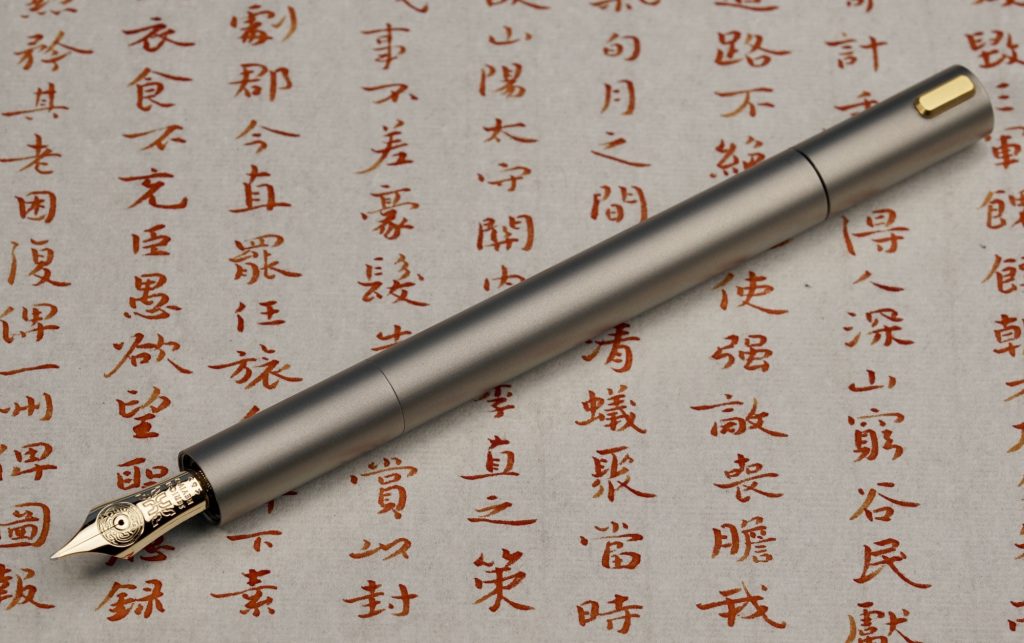 毀三軍餽
計得人深山窮谷民獻
路不絕使强敵喪膽我
氣旬月之間清蟻聚當時
山陽太守關内季直之策
事不差豪髮賞以封
劇郡今直罷任旅下素
衣食不充臣愚欲望聖錄
矜其老困復俾一州俾圖報